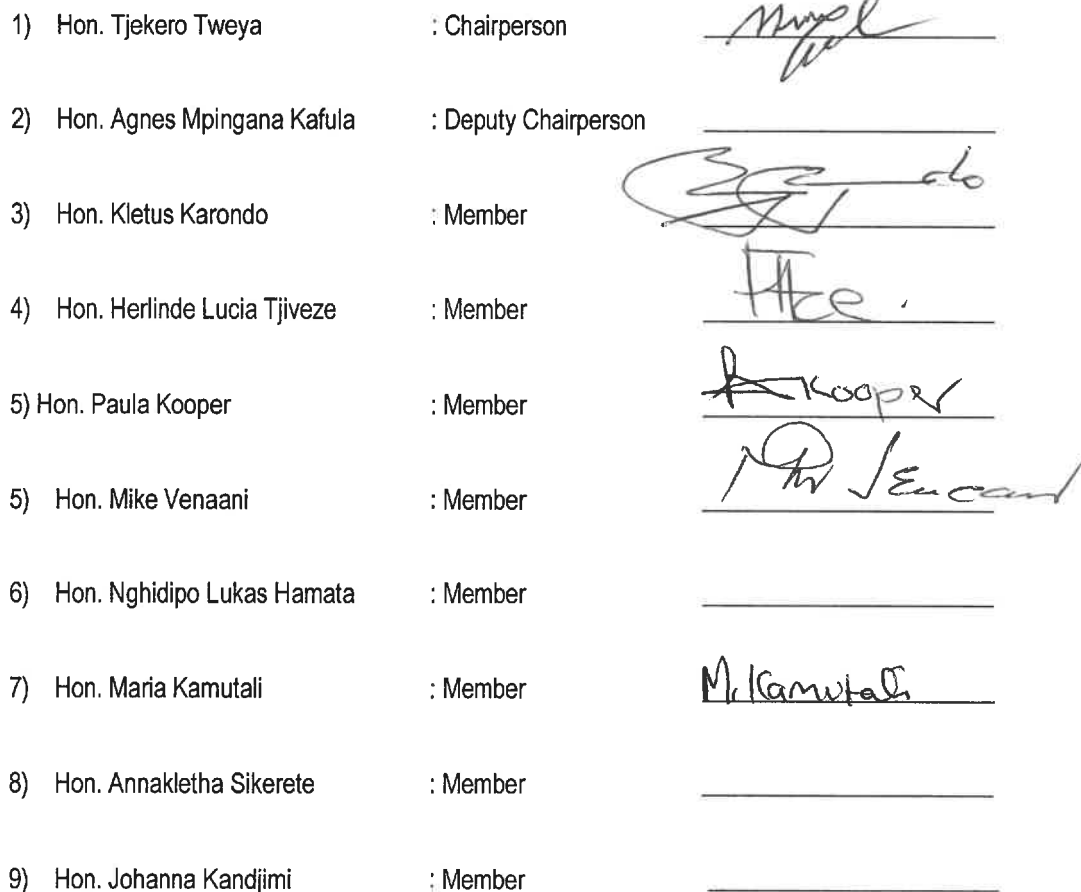 1) Hon. Tjekero Tweya : Chairperson
2) Hon. Agnes Mpingana Kafula : Deputy Chairperson
3) Hon. Kletus Karondo : Member
4) Hon. Herlinde Lucia Tjiveze : Member
5) Hon. Paula Kooper : Member Kooper
5) Hon. Mike Venaani : Member
6) Hon. Nghidipo Lukas Hamata : Member
7) Hon. Maria Kamutali : Member M. Kamutali
8) Hon. Annakletha Sikerete : Member
9) Hon. Johanna Kandjimi : Member